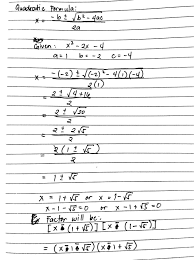 Quadratic Formula:
x = -b ± √b² - 4ac
2a
Given: x² - 2x - 4
a = 1 b = -2 c = -4
x = -(-2) ± √(-2)² - 4(1)(-4)
2(1)
= 2 ± √4+16
2
= 2 ± √20
2
= 2 ± 2√5
2
= 2(1 ± √5)
2
= 1 ± √5
x = 1+√5 or x = 1-√5
x-1-√5 = 0 or x-1+√5 = 0
Factor will be:
[x (1+√5)] [x (1-√5)]
= (x 1 √5)(x 1+√5)